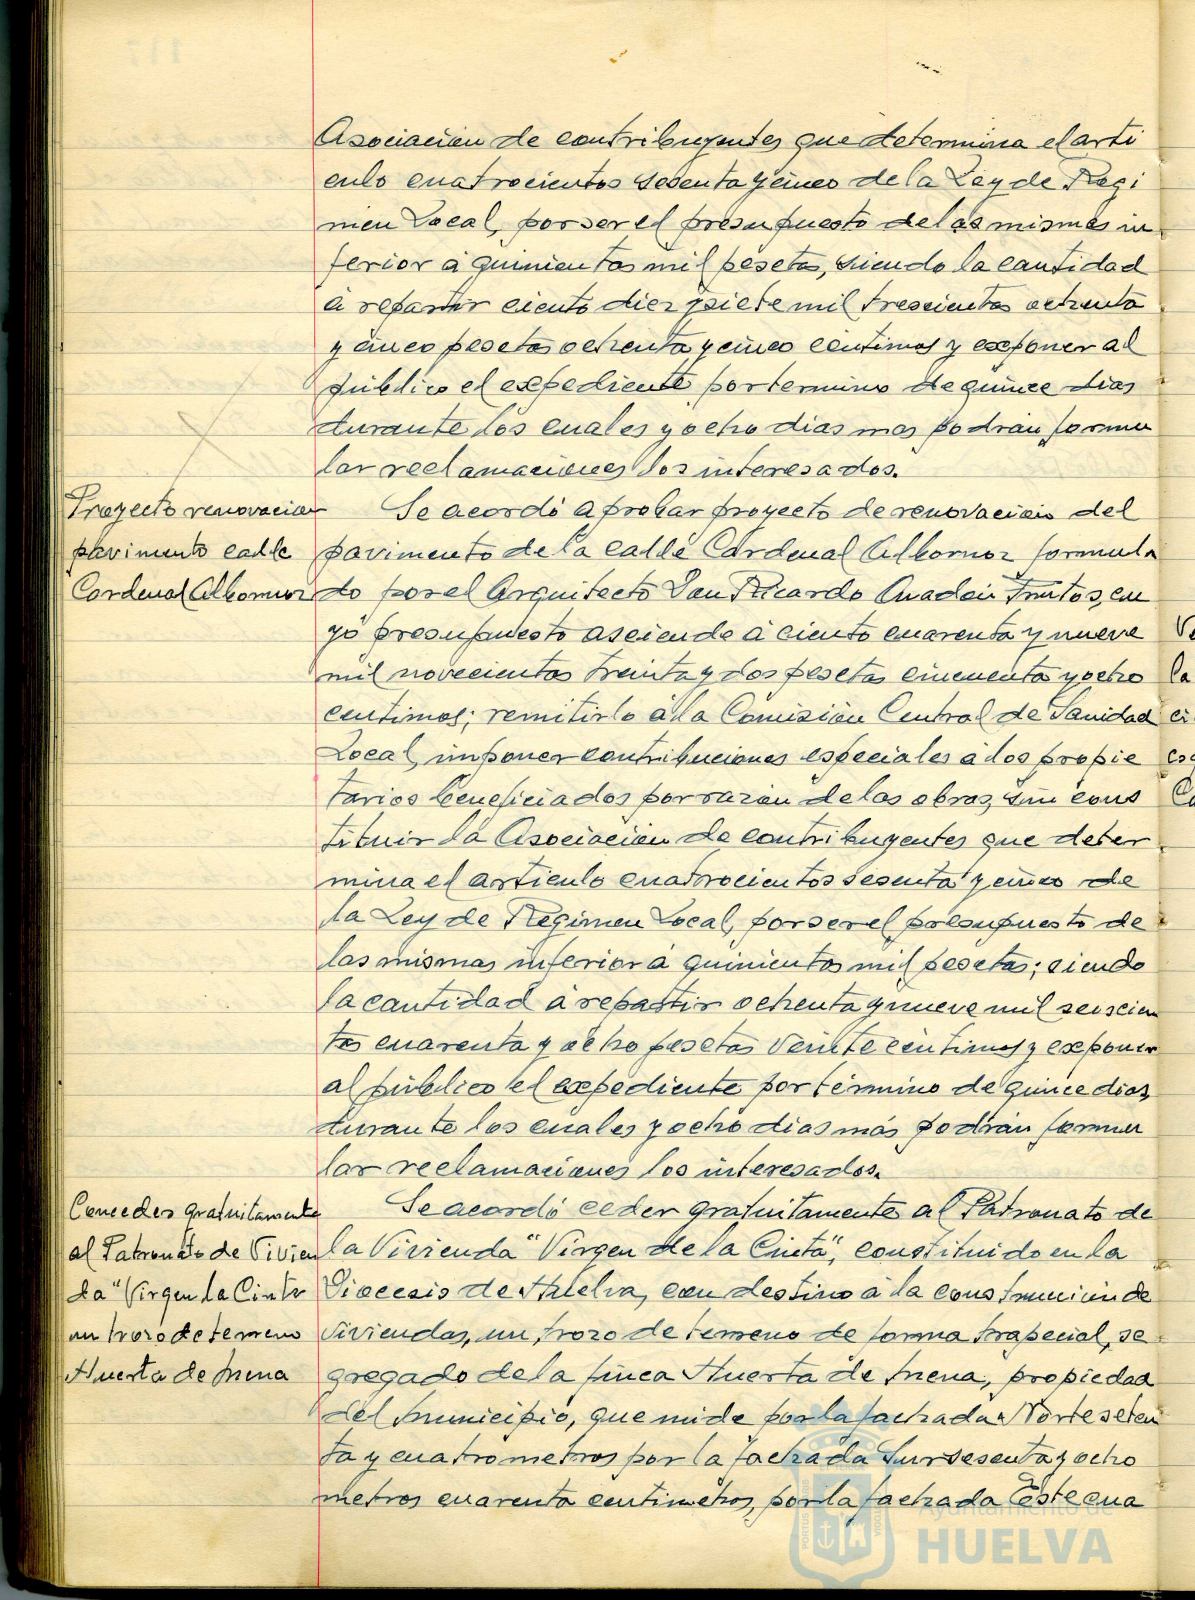 Asociación de contribuyentes que determina el artí
culo cuatrocientos sesenta y cinco de la Ley de Regi
men Local, por ser el presupuesto de las mismas in
ferior á quinientas mil pesetas, siendo la cantidad
á repartir ciento diez y siete mil trescientas ochenta
y cinco pesetas ochenta y cinco céntimos y exponer al
público el expediente por termino de quince dias
durante los cuales y ocho dias mas podrán formu
lar reclamaciones los interesados.
Proyecto renovacion
pavimento calle
Cardenal Albornoz
Se acordó aprobar proyecto de renovación del
pavimento de la calle Cardenal Albornoz formula
do por el Arquitecto Don Ricardo Anadón Frutos, cu
yo presupuesto asciende á ciento cuarenta y nueve
mil novecientas treinta y dos pesetas cincuenta y ocho
centimos; remitirlo á la Comisión Central de Sanidad
Local, imponer contribuciones especiales á los propie
tarios beneficiados por razón de las obras, sin cons
tituir la Asociación de contribuyentes que deter
mina el articulo cuatrocientos sesenta y cinco de
la Ley de Regimen Local, por ser el presupuesto de
las mismas inferior á quinientas mil pesetas; siendo
la cantidad á repartir ochenta y nueve mil seiscien
tas cuarenta y ocho pesetas veinte centimos y exponer
al público el expediente por término de quince dias,
durante los cuales y ocho dias más podrán formu
lar reclamaciones los interesados.
Conceder gratuitamente
al Patronato de Vivien
da "Virgen la Cinta
un trozo de terreno
Huerta de Mena
Se acordó ceder gratuitamente al Patronato de
la Vivienda "Virgen de la Cinta", constituido en la
Diocesis de Huelva, con destino á la construcción de
viviendas, un trozo de terreno de forma trapecial, se
gregado de la finca Huerta de Mena, propiedad
del municipio, que mide por la fachada Norte seten
ta y cuatro metros por la fachada Sur sesenta y ocho
metros cuarenta centimetros, por la fachada Este cua
Ayuntamiento de
HUELVA